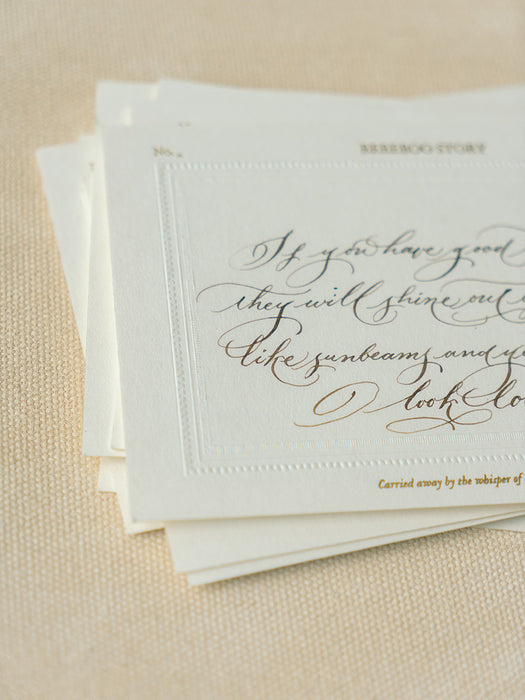 No.
BEBEBOO STORY
If you have good
they will shine out
like sunbeams and
look
Carried away by the whisper of